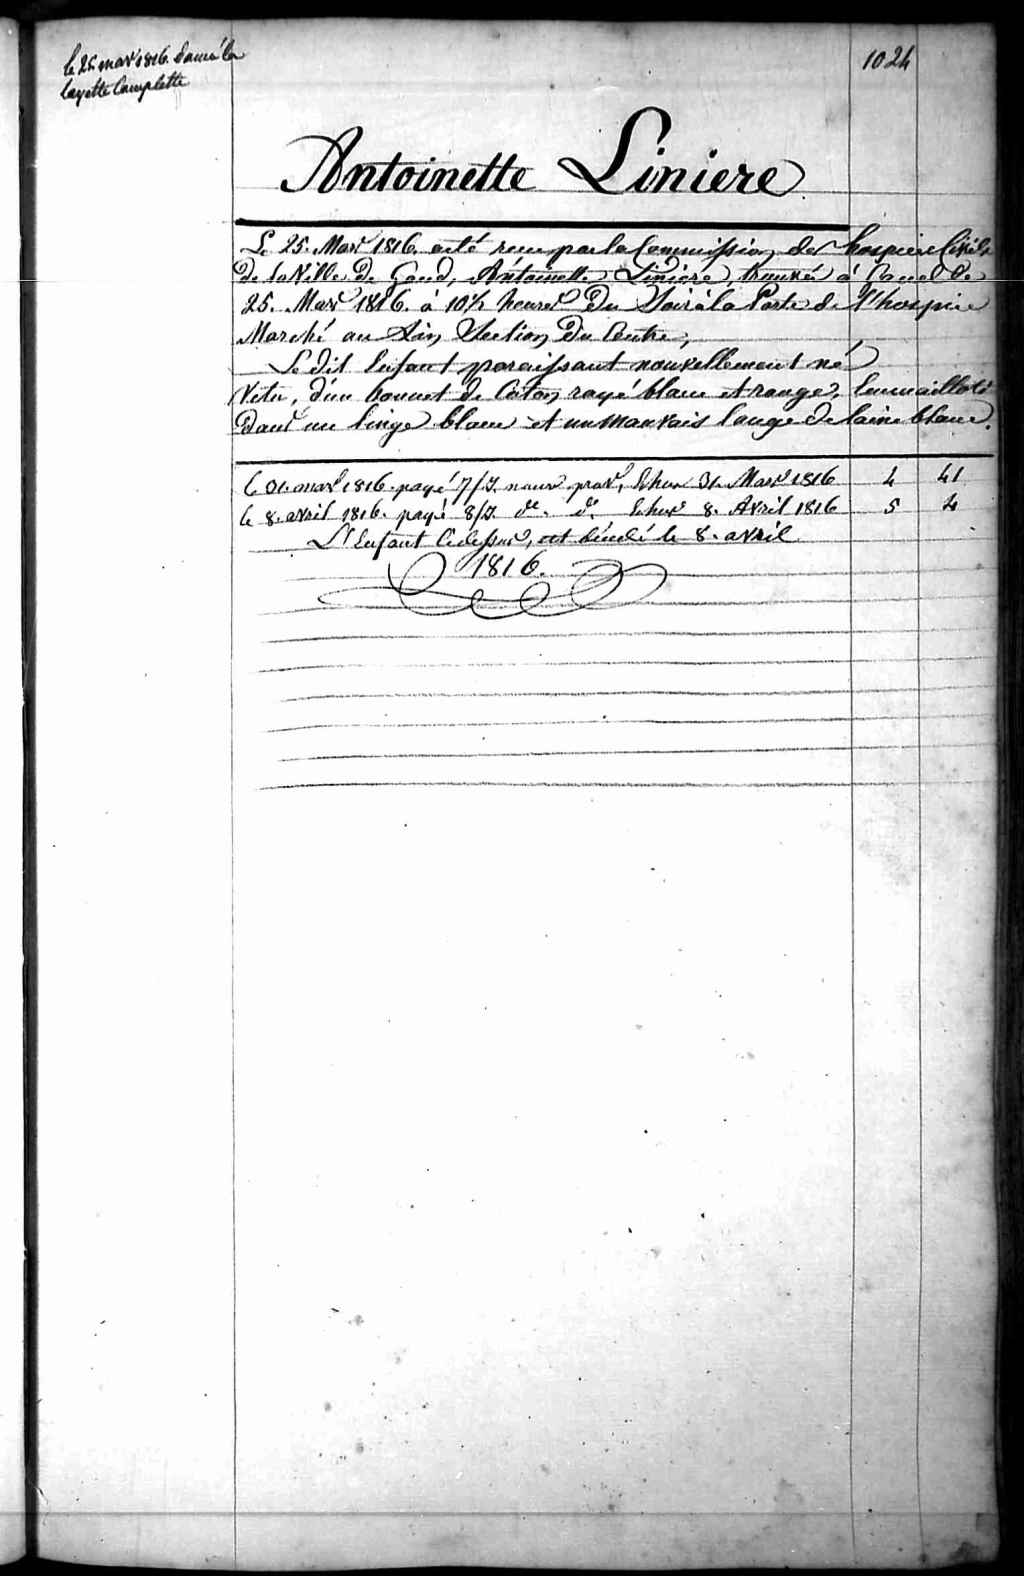 le 25 mars 1816 donné la
layette Complette
1024
Antoinette Liniere
Le 25. Mars 1816. a été reçu par la Commission des hospices Civils
De la Ville De Gand, Antoinette Liniere, trouvée à Gand le
25. Mars 1816. à 10½ heures Du Soir à la Porte de l'hospice
Marché au Lin, Section Du Centre,
Le dit Enfant paraissant nouvellement né
Vetu, d'un bonnet de Coton rayé blanc et rouge, Emmailloté
Dans un linge blanc et un mauvais lange de laine blanc.
Le 31. mars 1816. payé 7/J. nour. prov. Echus 31. Mars 1816 4 41
le 8. avril 1816. payé 8/J. do. do Echus 8. Avril 1816 5 4
L'Enfant Cidessus, est décédé le 8. avril
1816.